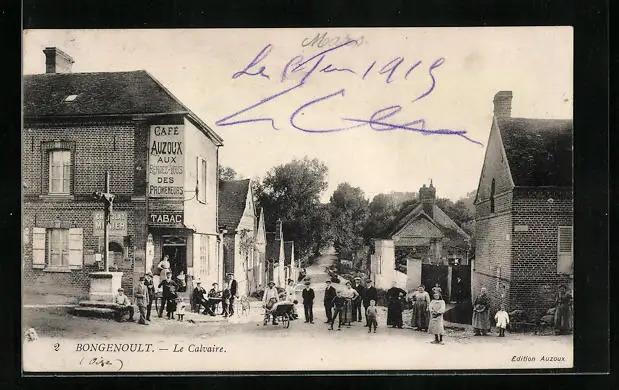 Le 1er 1919
CAFÉ
AUZOUX
AUX
RENDEZ-VOUS
DES
PROMENEURS
TABAC
CHOCOLAT
MENIER
2 BONGENOULT. — Le Calvaire.
(Oise)
Edition Auzoux